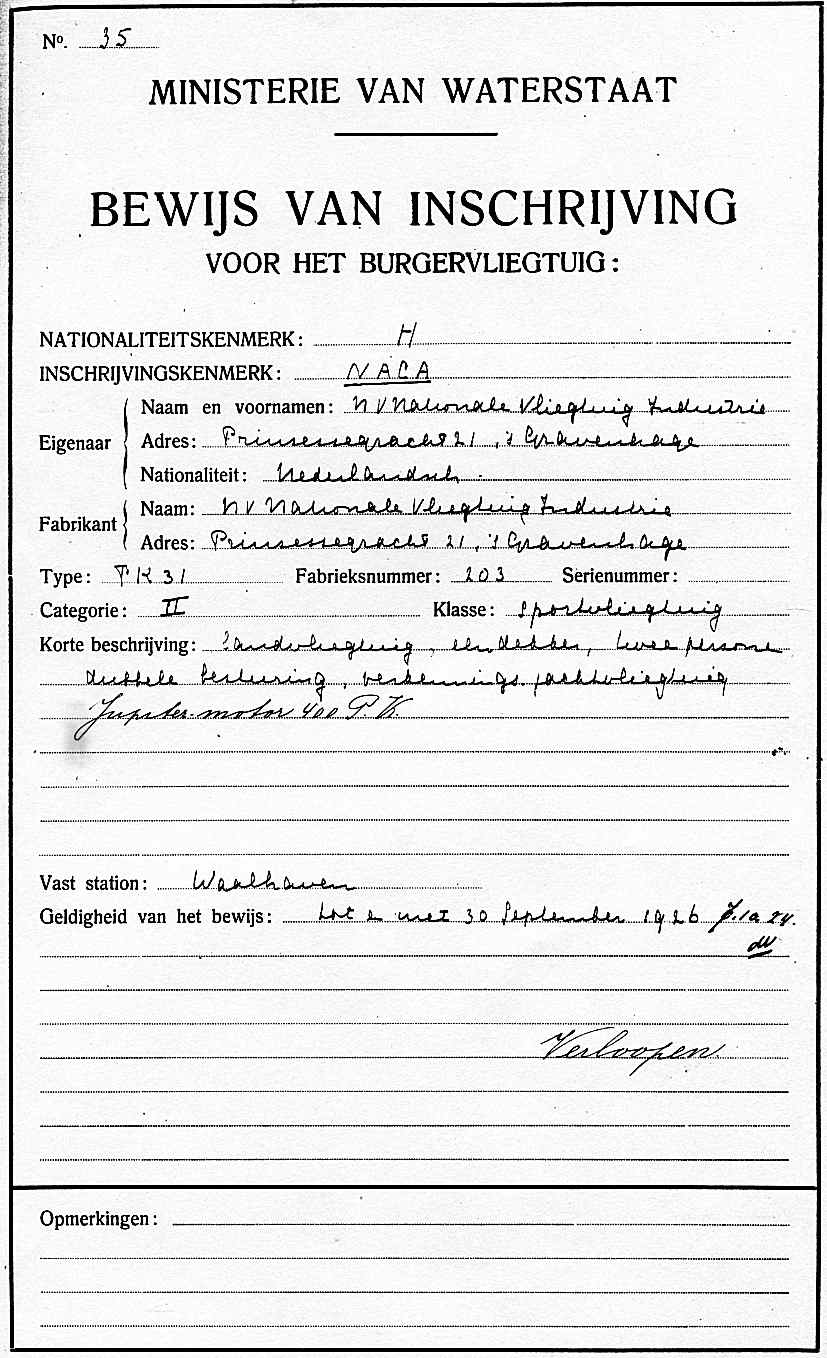 No. 35
MINISTERIE VAN WATERSTAAT
BEWIJS VAN INSCHRIJVING
VOOR HET BURGERVLIEGTUIG:
NATIONALITEITSKENMERK: H
INSCHRIJVINGSKENMERK: NACA
Naam en voornamen: NV Nationale Vliegtuig Industrie
Eigenaar Adres: Prinsessegracht 21, 's Gravenhage
Nationaliteit: Nederlandsch.
Fabrikant Naam: NV Nationale Vliegtuig Industrie
Adres: Prinsessegracht 21, 's Gravenhage
Type: FK 31 Fabrieksnummer: 203 Serienummer:
Categorie: II Klasse: Sportvliegtuig
Korte beschrijving: Landvliegtuig, eendekker, twee persoons
dubbele besturing, verkennings jachtvliegtuig
Jupiter-motor 400 P.K.
Vast station: Waalhaven
Geldigheid van het bewijs: tot en met 30 September 1926
Verloopen.
Opmerkingen: